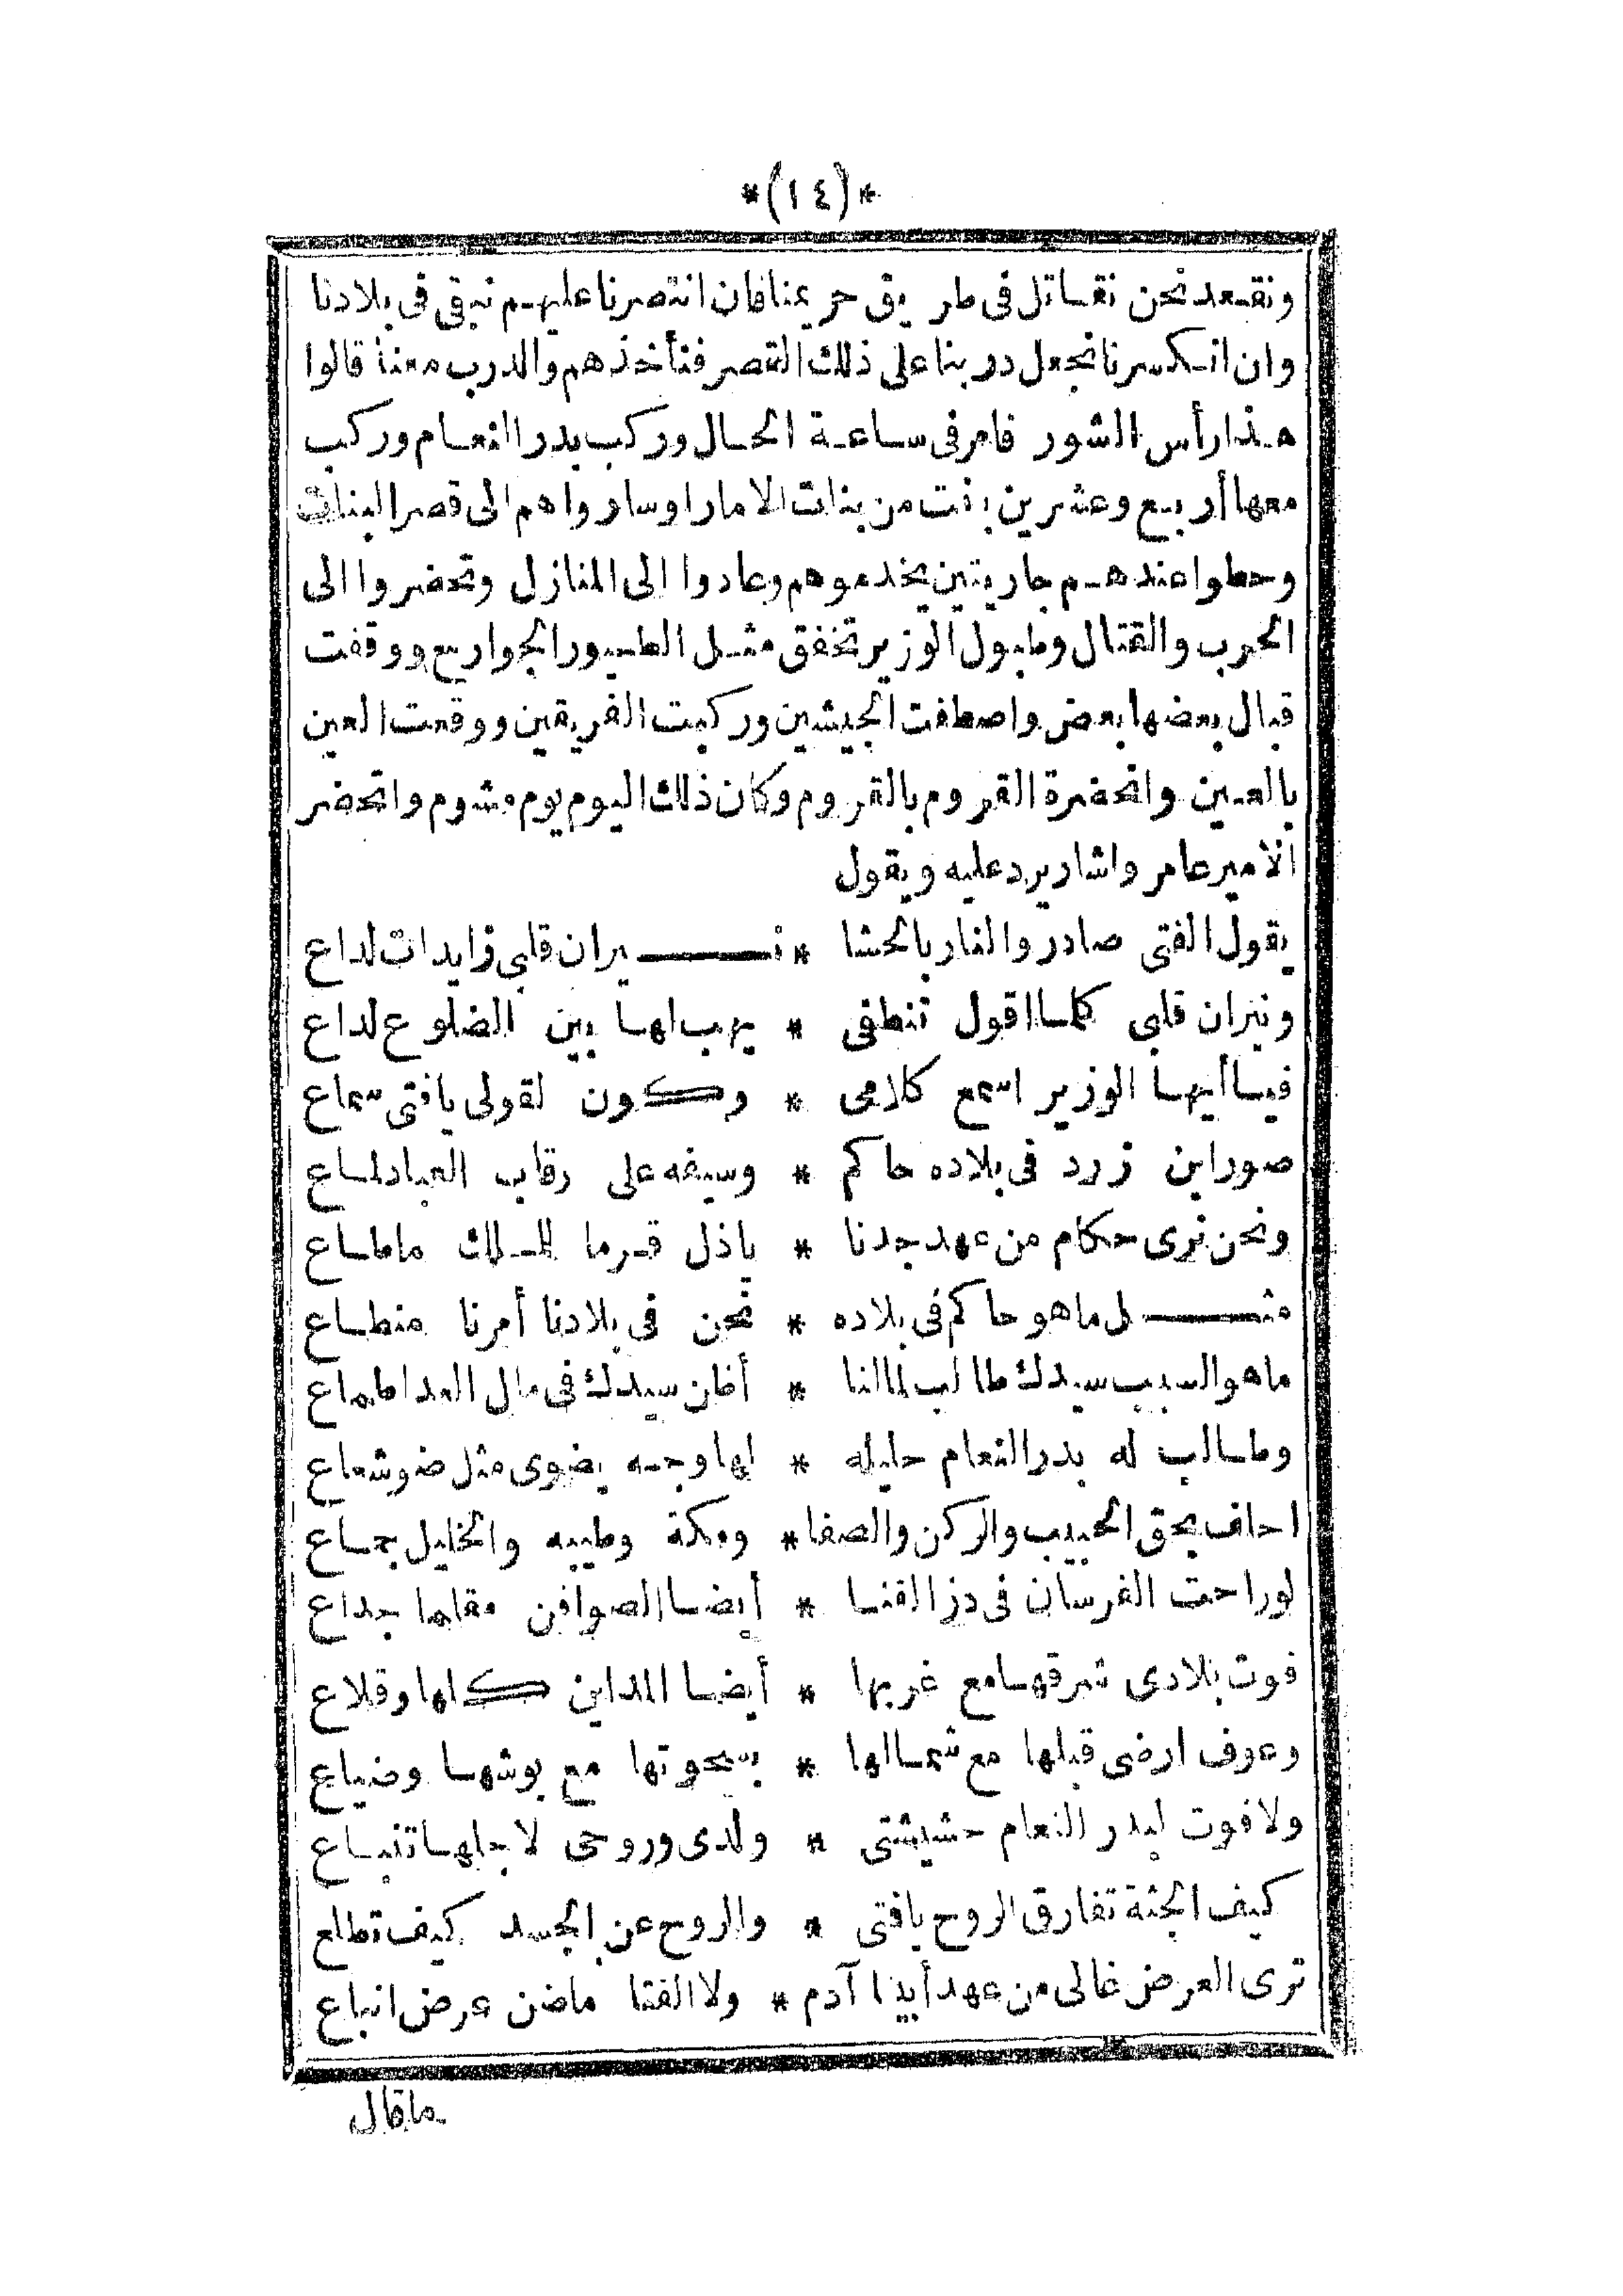 *(١٤)*
ونقعد نحن نقاتل فى طريق حريمنا فان انتصرنا عليهم نبقى فى بلادنا
وان انكسرنا نجعل دربنا على ذلك القصر فنأخذهم والدرب معنا قالوا
هذا رأس الشور فامر فى ساعة الحال وركب بدر النعام وركب
معها أربع وعشرين بنت من بنات الامارا وساروا هم الى قصر البنات
وحطوا عندهم جاريتين يخدموهم وعادوا الى المنازل وتحضروا الى
الحرب والقتال وطبول الوزير تخفق مثل الطيور الجوارح ووقفت
قبال بعضها بعض واصطفت الجيشين وركبت الفريقين ووقعت العين
بالعين وانحضرة القروم بالقروم وكان ذلك اليوم يوم مشوم واتحضر
الامير عامر واشار يرد عليه ويقول
يقول الفتى صادر والنار بالحشا * نيران قلبى زايدات لداع
ونيران قلبى كلما اقول تنطفى * يهب لها بين الضلوع لداع
فيا أيها الوزير اسمع كلامى * وكون لقولى يافتى سماع
صور ابن زرد فى بلاده حاكم * وسيفه على رقاب العباد لماع
ونحن نرى حكام من عهد جدنا * باذل قرما للملك ماطاع
مثل ماهو حاكم فى بلاده * نحن فى بلادنا أمرنا منطاع
ماهو السبب سيدك طالب لمالنا * أظن سيدك فى مال العدا طماع
وطالب له بدر النعام حليله * لها وجه يضوى مثل ضو شعاع
احلف بحق الحبيب والركن والصفا * ومكة وطيبه والخليل جماع
لو راحت الفرسان فى دز القنا * أيضا الصوافن مقلها جداع
فوت بلادى شرقها مع غربها * أيضا المداين كلها وقلاع
وعوف ارضى قبلها مع شمالها * بسحوتها مع بوشها وضياع
ولا فوت لبدر النعام حشيشتى * ولدى وروحى لاجلها تنباع
كيف الجثة تفارق الروح يافتى * والروح عن الجسد كيف تطلع
ترى العرض غالى من عهد أبينا آدم * ولا الفتا ماضن عرض انباع
ماقال